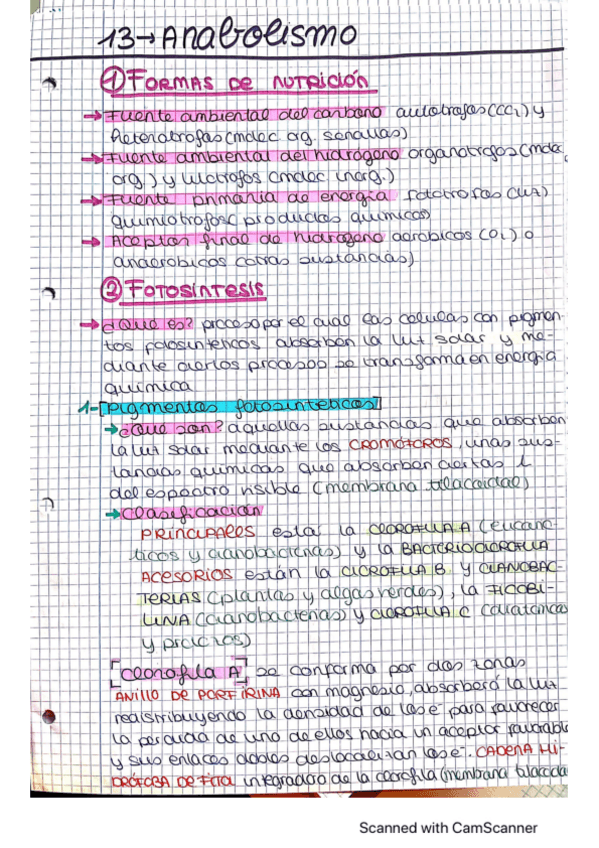 13→Anabolismo
① FORMAS DE NUTRICIÓN
→ Fuente ambiental del carbono autótrofos (CO2) y
heterótrofas (molec org. sencillas)
→ Fuente ambiental del hidrógeno organotrofos (molec
org.) y litótrofos (molec inorg.)
→ Fuente primaria de energía fotótrofos (luz)
quimiótrofos (productos químicos)
→ Aceptor final de hidrógeno aeróbicos (O2) o
anaeróbicos (otras sustancias)
② FOTOSÍNTESIS
→ ¿Qué es? proceso por el cual las células con pigmen-
tos fotosintéticos absorben la luz solar y me-
diante ciertos procesos se transforma en energía
química
1-[Pigmentos fotosintéticos]
→ ¿Qué son? aquellas sustancias que absorben
la luz solar mediante los CROMÓFOROS, unas sus-
tancias químicas que absorben ciertas
del espectro visible (membrana tilacoidal)
→ Clasificación
PRINCIPALES está la CLOROFILA A (eucarió-
ticos y cianobacterias) y la BACTERIOCLOROFILA
ACESORIOS están la CLOROFILA B y CIANOBAC-
TERIAS (plantas y algas verdes), la FICOBI-
LINA (cianobacterias) y CLOROFILA C (diatomeas
y
[Clorofila A] se conforma por dos zonas
ANILLO DE PORFIRINA con magnesio, absorberá la luz
redistribuyendo la densidad de los e⁻ para favorecer
la pérdida de uno de ellos hacia un aceptor favorable
y sus enlaces dobles deslocalizan los e⁻. CADENA HI-
DRÓFOBA DE FITOL integradora de la clorofila (membrana tilacoida
Scanned with CamScanner